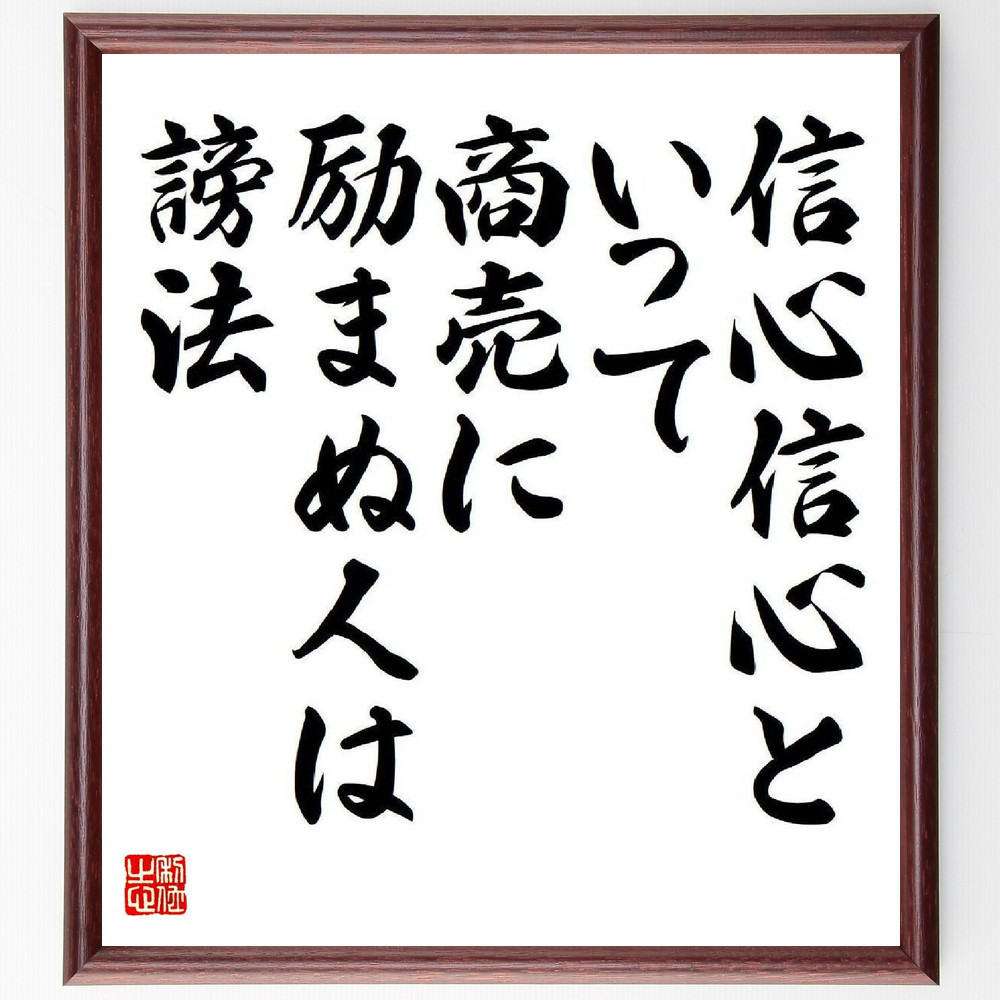 信心信心と
いって
商売に
励まぬ人は
謗法